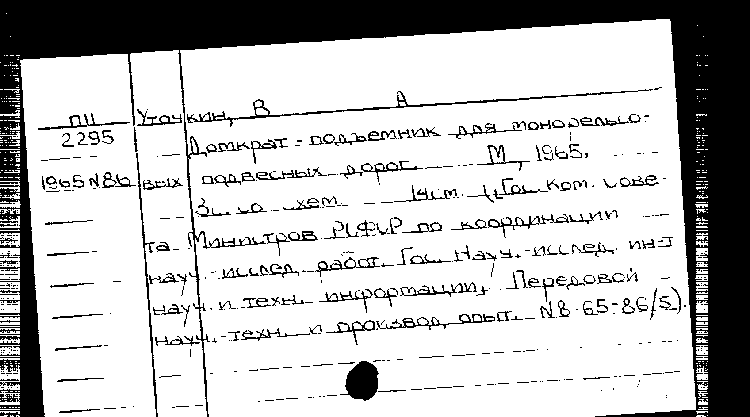 ПЦ Уточкин, В А
2295 Домкрат-подъемник для монорельсо-
1965 N86 вых подвесных дорог. М, 1965.
3с. со схем. 14см. (Гос. ком. Сове-
та Министров РСФСР по координации
науч.-исслед. работ. Гос. Науч.-исслед. ин-т
науч. и техн. информации, Передовой
науч.-техн. и производ. опыт. N8-65-86/5).